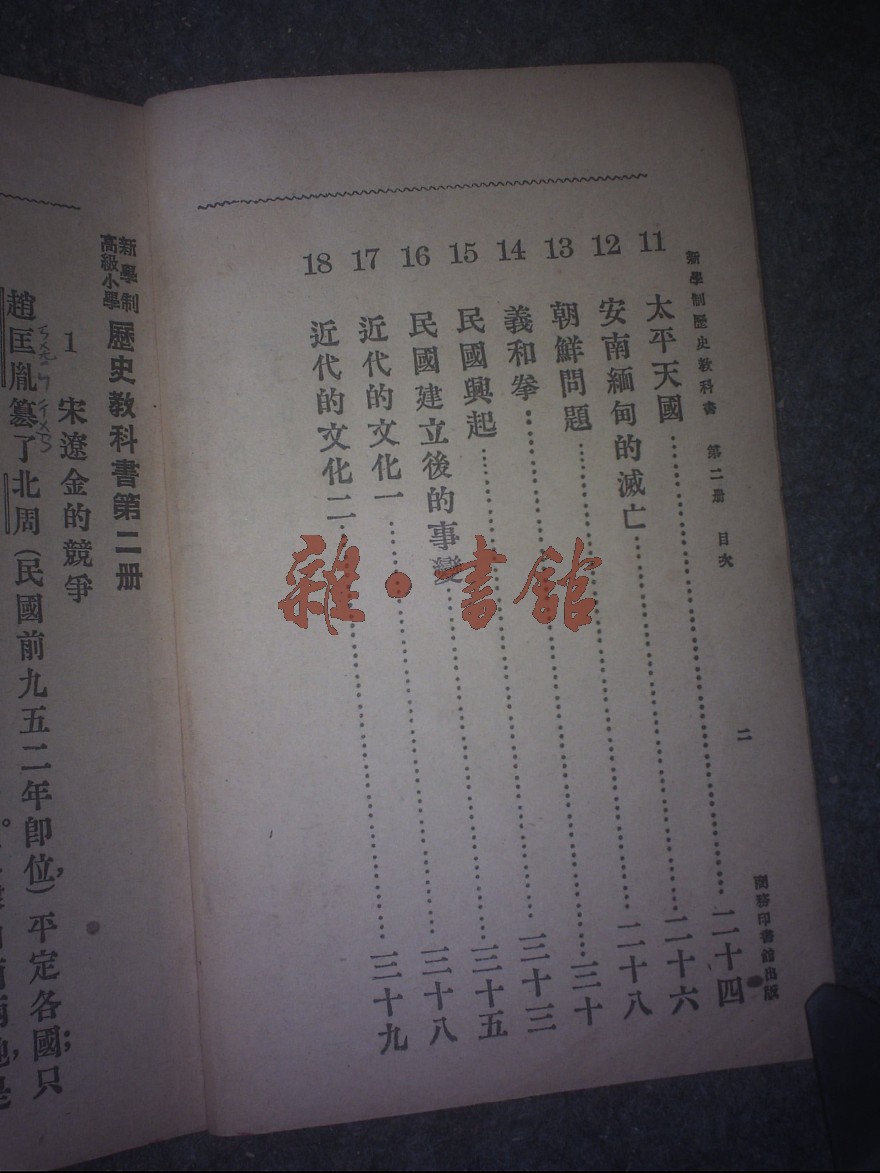 新學制歷史教科書 第二册 目次 二 商務印書館出版
11 太平天國……二十四
12 安南緬甸的滅亡……二十六
13 朝鮮問題……二十八
14 義和拳……三十
15 民國興起……三十三
16 民國建立後的事變……三十五
17 近代的文化一……三十八
18 近代的文化二……三十九
新學制
高級小學
歷史教科書第二册
1 宋遼金的競爭
趙匡胤篡了北周(民國前九五二年卽位)平定各國;只
雜·書館